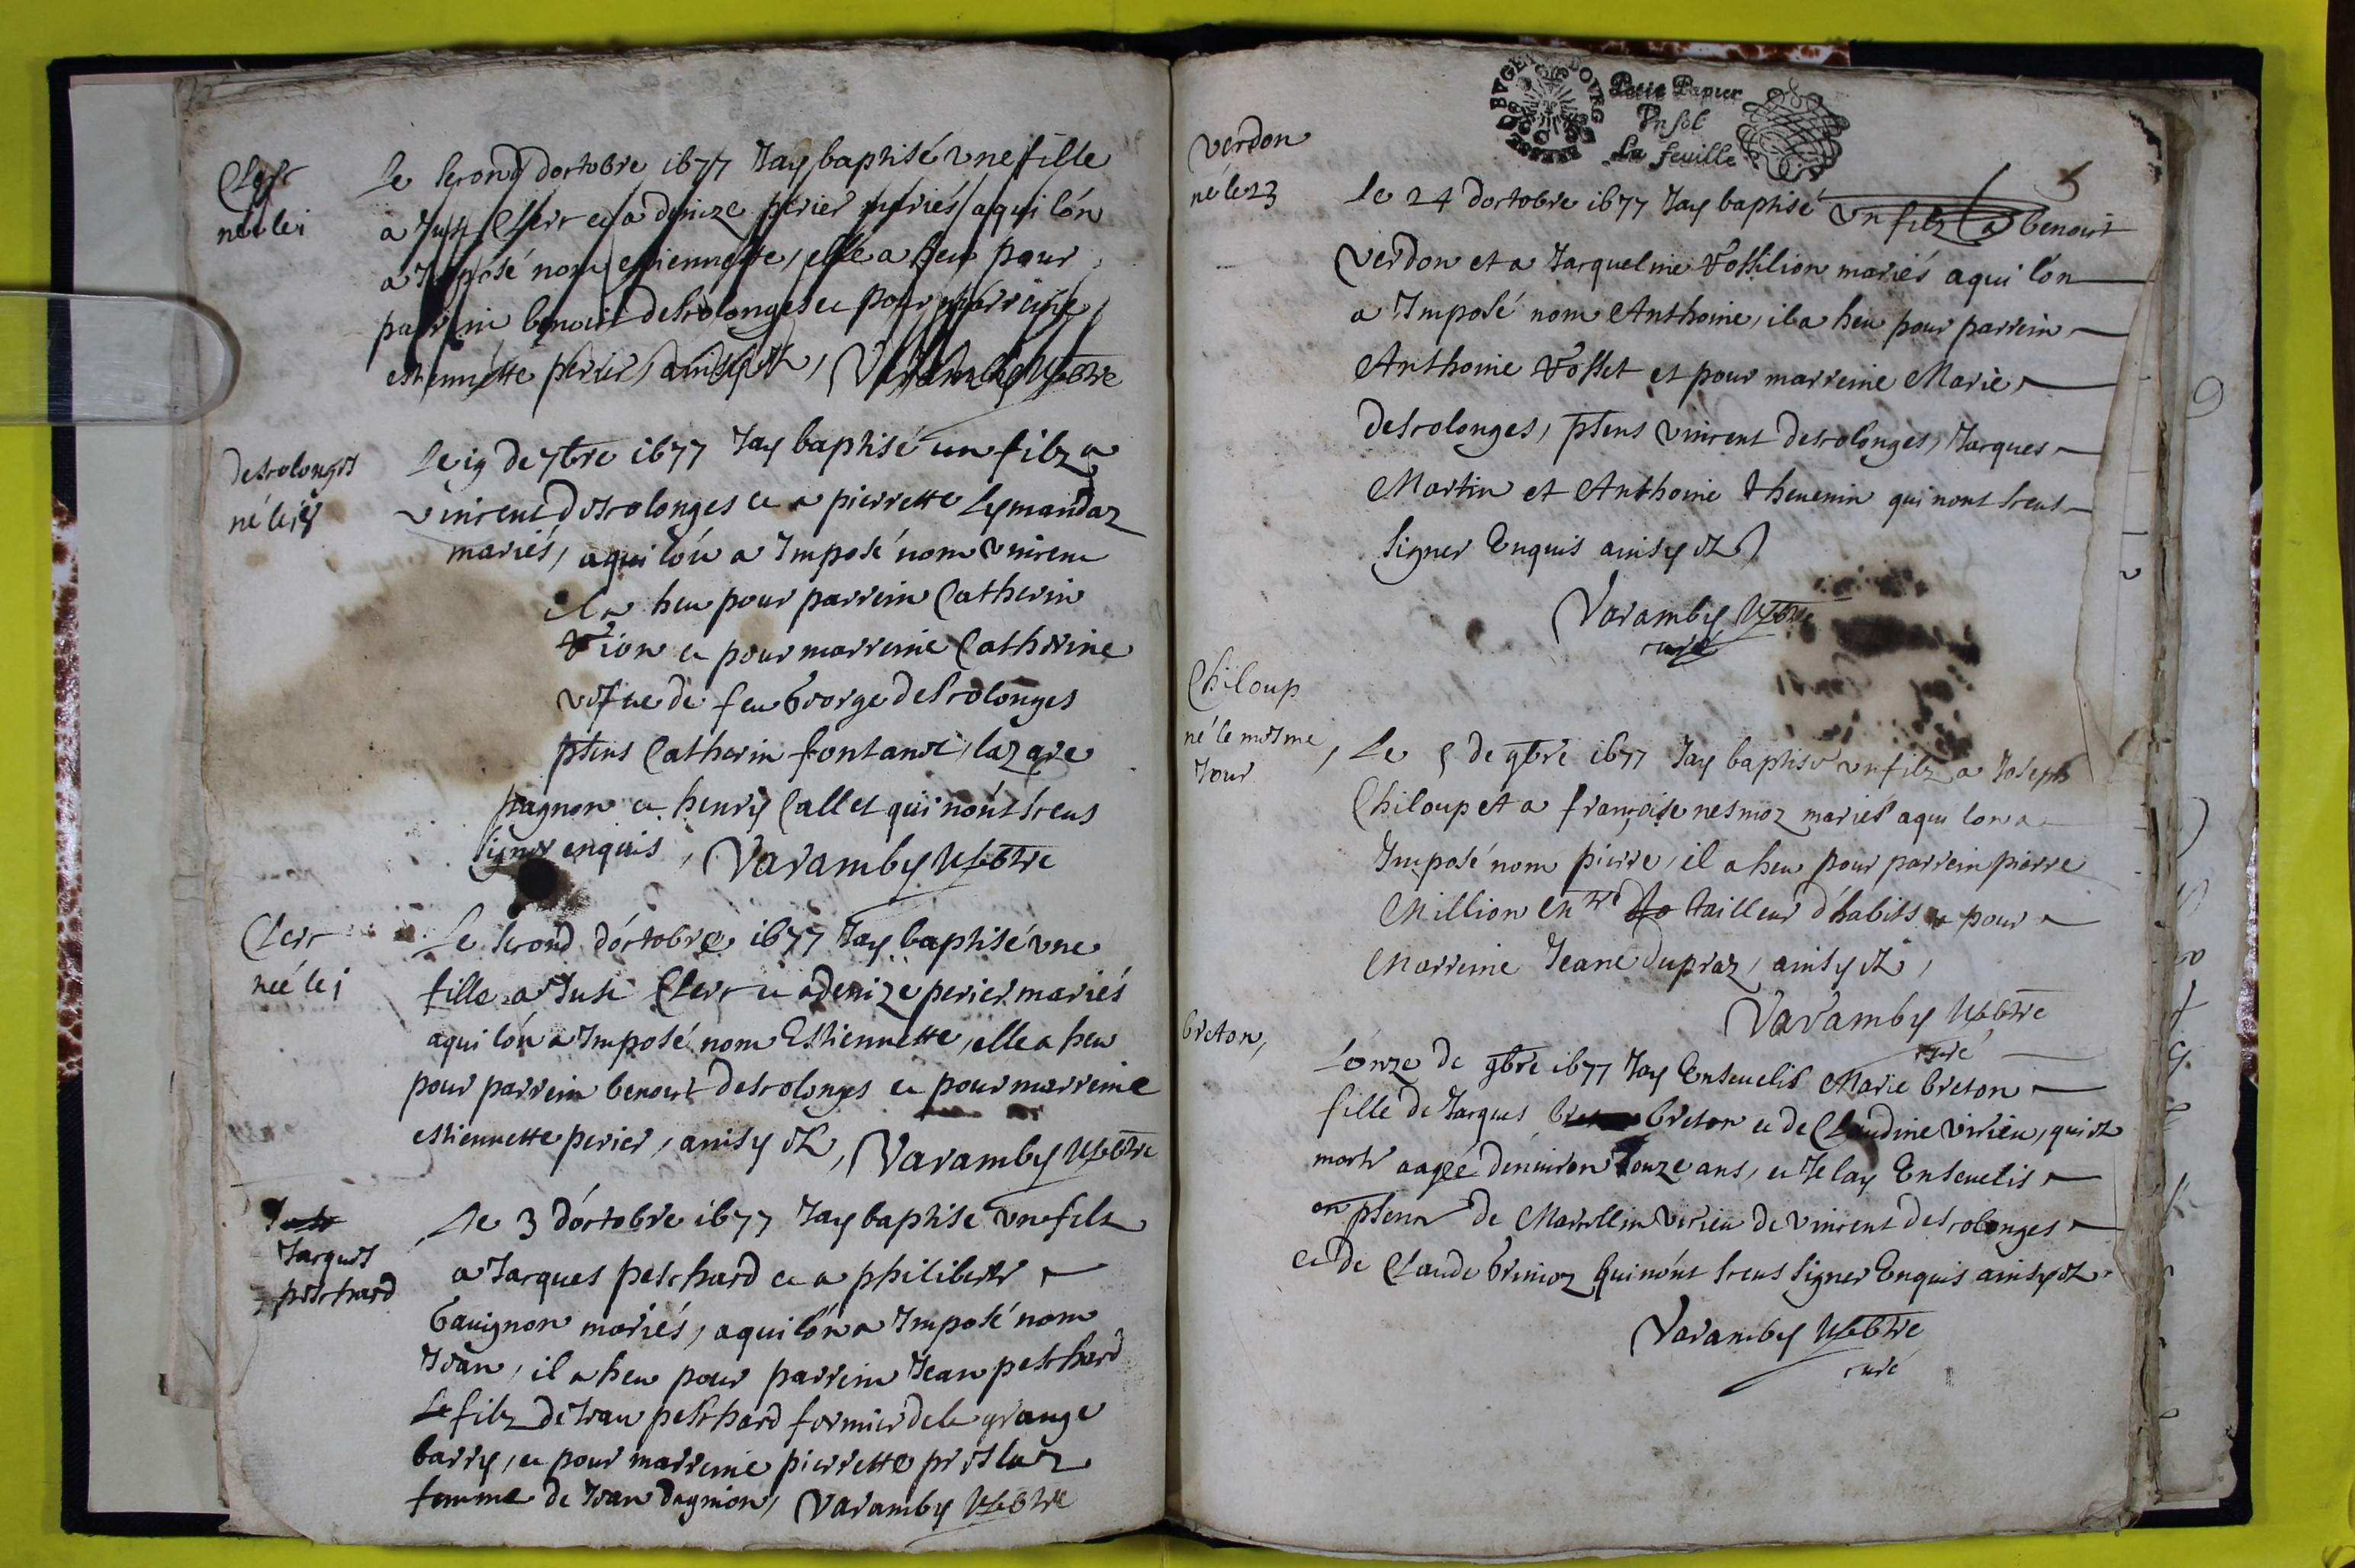 Clerc
née le i
Le second doctobre 1677 Jay baptisé une fille
a Just Clerc et a denize perier mariés aqui lón
a Imposé nom estiennette, elle a heu pour
parrein benoist descolonges et pour marreine
estiennette perier, ainsy est, Varamby ptre
descolonges
né le 18
Le 19 de 7bre 1677 Jay baptisé un filz a
vincent descolonges et a pierrette Lymandaz
mariés, aqui lón a Imposé nom vincent
il a heu pour parrein Catherin
vion et pour marreine Catherine
vefue de feu George descolonges
pñs Catherin fontane, lazare
pagnon et henry Callet qui nont sceus
signer enquis, Varamby ptre
Clerc
neé le i
Le second dóctobre 1677 Jay baptisé une
fille a Just Clerc et a denize perier mariés
aqui lón a Imposé nom Estiennette, elle a heu
pour parrein benoist descolonges et pour marreine
estiennette perier, ainsy est, Varamby ptre
Jacques
peschard
Le 3 dóctobre 1677 Jay baptisé un filz
a Jacques peschard et a philiberte
Gauignon mariés, aqui lón a Imposé nom
Jean, il a heu pour parrein Jean peschard
Le filz de Jean peschard formier de la grange
barry, et pour marreine pierrette
femme de Jean dagnion, Varamby ptre
Petit Papier
Un sol
La feuille
verdon
né le 23
Le 24 doctobre 1677 Jay baptisé un filz a benoist
Verdon et a Jacqueline Vossilion mariés aqui lón
a Imposé nom Anthoine, il a heu pour parrein
Anthoine Vosset et pour marreine Marie
descolonges, pñs vincent descolonges, Jacques
Martin et Anthoine theuenin qui nont sceus
signer Enquis ainsy est
Varamby ptre
curé
Chiloup
né le mesme
Jour
Le 5 de 9bre 1677 Jay baptisé un filz a Joseph
Chiloup et a françoise nesmoz mariés aqui lon a
Imposé nom pierre, il a heu pour parrein pierre
Million mtre tailleur d'habits et pour
Marreine Jeane dupraz, ainsy est,
Varamby ptre
curé
breton,
Lónze de 9bre 1677 Jay Enseuelis Marie breton
fille de Jacques breton et de Claudine virieu, qui est
morte aagée denuiron douze ans, et Je lay Enseuelis
en pñce de Marcellin virieu de vincent descolonges
et de Claude brunoz quinónt sceus signer Enquis ainsy est
Varamby ptre
curé